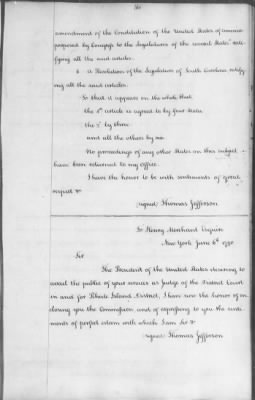 amendment of the Constitution of the United States of America
proposed by Congress to the Legislatures of the several States rati-
fying all the said articles.
6. a Resolution of the Legislature of South Carolina ratify-
ing all the said articles.
So that it appears on the whole that
the 1st article is agreed to by four States
the 2d by three
and all the others by
No proceedings of any other States on this subject
have been returned to my office.
I have the honor to be with sentiments of great
respect &
(signed) Thomas Jefferson
To Henry Marchant Esquire
New York June 6th 1790
Sir
The President of the United States desiring to
avail the public of your services as Judge of the District Court
in and for Rhode Island District, I have now the honor of en-
closing you the Commission, and of expressing to you the senti-
ments of perfect esteem with which I am Sir &
(signed) Thomas Jefferson